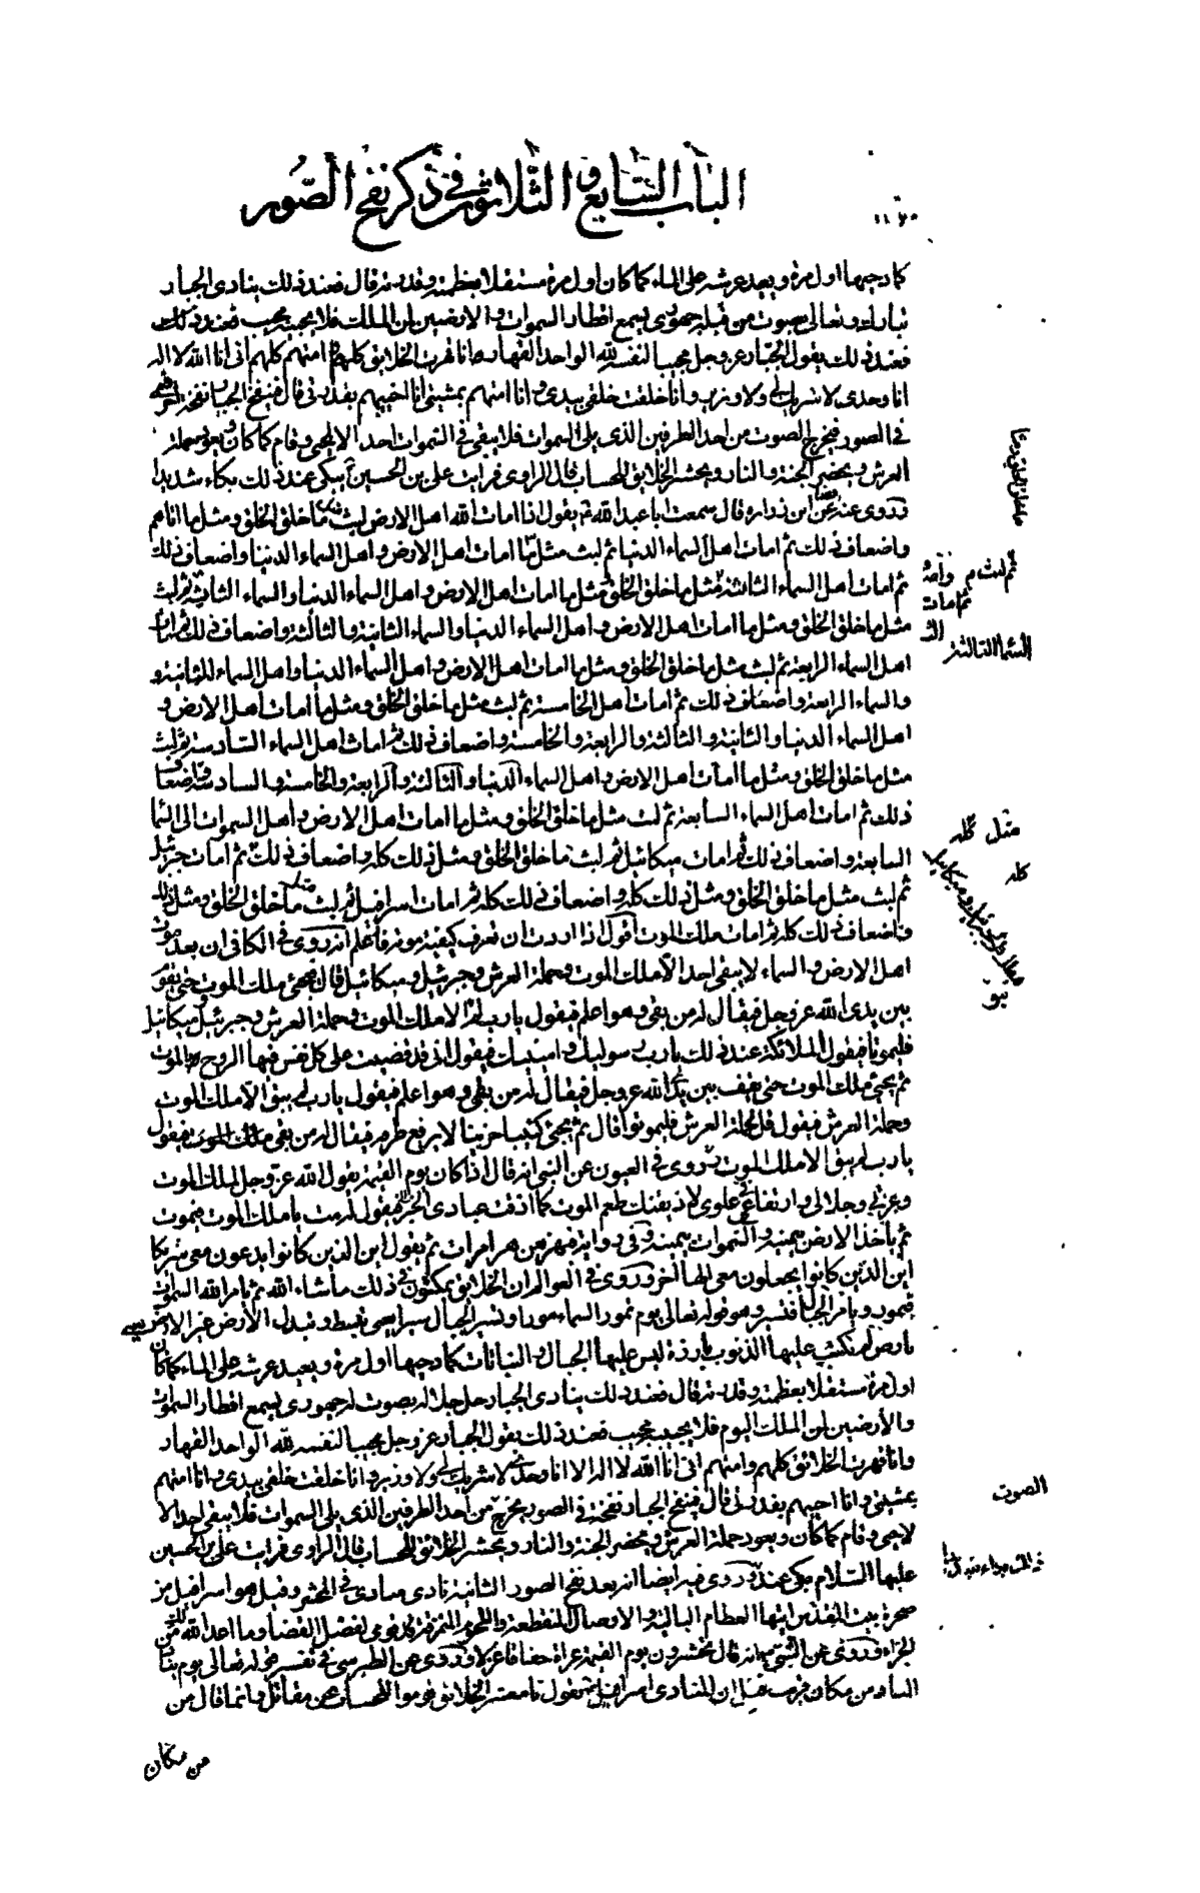 الباب السابع و الثلاثون في ذكر نفخ الصور
كما دحيها اول مرة و يعيد عرشه على الماء كما كان اول مرة مستقلا بعظمته و قدرته قال فعند ذلك ينادي الجبار
تبارك و تعالى بصوت من قبله جهوري يسمع اقطار السموات و الارضين لمن الملك فلا يجيبه مجيب فعند ذلك
فعند ذلك يقول الجبار عز و جل مجيبا لنفسه لله الواحد القهار و انا قهرت الخلائق كلهم و امتهم كلهم اني انا الله لا اله الا
انا وحدي لا شريك لي و لا وزير و انا خلقت خلقي بيدي و انا امتهم بمشيتي و انا احييهم بقدرتي قال فينفخ الجبار نفخة اخرى
في الصور فيخرج الصوت من احد الطرفين الذي يلي السموات فلا يبقى في السموات احد الا حيي و قام كما كان و يعود حملة
العرش و يحضر الجنة و النار و يحشر الخلائق للحساب قال الراوي فرايت علي بن الحسين يبكي عند ذلك بكاء شديدا
و روي عن ابن زرارة قال سمعت ابا عبد الله يقول اذا امات الله اهل الارض لبث مثل ما خلق الخلق و مثل ما اماتهم
و اضعاف ذلك ثم امات اهل السماء الدنيا ثم لبث مثل ما امات اهل الارض و اهل السماء الدنيا و اضعاف ذلك
ثم امات اهل السماء الثالثة مثل ما خلق الخلق و مثل ما امات اهل الارض و اهل السماء الدنيا و السماء الثانية ثم لبث
مثل ما خلق الخلق و مثل ما امات اهل الارض و اهل السماء الدنيا و السماء الثانية و الثالثة و اضعاف ذلك ثم امات
اهل السماء الرابعة ثم لبث مثل ما خلق الخلق و مثل ما امات اهل الارض و اهل السماء الدنيا و اهل السماء الثانية و
و السماء الرابعة و اضعاف ذلك ثم امات اهل الخامسة ثم لبث مثل ما خلق الخلق و مثل ما امات اهل الارض و
اهل السماء الدنيا و الثانية و الثالثة و الرابعة و الخامسة و اضعاف ذلك ثم امات اهل السماء السادسة ثم لبث
مثل ما خلق الخلق و مثل ما امات اهل الارض و اهل السماء الدنيا و الثالثة و الرابعة و الخامسة و السادسة و اضعاف
ذلك ثم امات اهل السماء السابعة ثم لبث مثل ما خلق الخلق و مثل ما امات اهل الارض و اهل السموات الى السماء
السابعة و اضعاف ذلك ثم امات ميكائيل ثم لبث ما خلق الخلق و مثل ذلك كله و اضعاف ذلك ثم امات جبرئيل
ثم لبث مثل ما خلق الخلق و مثل ذلك كله و اضعاف ذلك كله ثم امات اسرافيل ثم لبث مثل ما خلق الخلق و مثل ذلك
و اضعاف ذلك كله ثم امات ملك الموت اقول اذا اردت ان تعرف كيفية موته فاعلم انه روي في الكافي ان بعد موت
اهل الارض و السماء لا يبقى احد الا ملك الموت و حملة العرش و جبرئيل و ميكائيل قال يجيء ملك الموت حتى يقوم
بين يدي الله عز و جل فيقال له من بقي و هو اعلم فيقول يا رب لم الا ملك الموت و حملة العرش و جبرئيل و ميكائيل
فليموتا فيقول الملائكة عند ذلك يا رب رسوليك و امينيك فيقول اني قد قضيت على كل نفس فيها الروح الموت
ثم يجيء ملك الموت حتى يقف بين يدي الله عز و جل فيقال له من بقي و هو اعلم فيقول يا رب لم يبق الا ملك الموت
و حملة العرش فيقول قل لحملة العرش فليموتوا قال ثم يجيء كئيبا حزينا لا يرفع طرفه فيقال له من بقي ملك الموت فيقول
يا رب لم يبق الا ملك الموت و روي في العيون عن النبي انه قال اذا كان يوم القيمة يقول الله عز و جل لملك الموت
و عزتي و جلالي و ارتفاعي في علوي لاذيقنك طعم الموت كما اذقت عبادي فيقول له مت يا ملك الموت فيموت
ثم ياخذ الارض بيمينه و السموات بيمينه و في رواية فيهزهن هزا مرات ثم يقول اين الذين كانوا يدعون معي شريكا
اين الذين كانوا يجعلون معي الها اخر و روي في العوالم ان الخلائق يمكثون في ذلك ما شاء الله ثم يامر الله السموات
فتمور و يامر الجبال فتسير و هو قوله تعالى يوم تمور السماء مورا و تسير الجبال سيرا يعني تبسط و تبدل الارض غير الارض يعني
بارض لم تكتسب عليها الذنوب بارزة ليس عليها الجبال و النباتات كما دحيها اول مرة و يعيد عرشه على الماء كما كان
اول مرة مستقلا بعظمته و قدرته قال فعند ذلك ينادي الجبار جل جلاله بصوت له جهوري يسمع اقطار السموات
و الارضين لمن الملك اليوم فلا يجيبه مجيب فعند ذلك يقول الجبار عز و جل مجيبا لنفسه لله الواحد القهار
و انا قهرت الخلائق كلهم و امتهم اني انا الله لا اله الا انا وحدي لا شريك لي و لا وزير و انا خلقت خلقي بيدي و انا امتهم
بمشيتي و انا احييهم بقدرتي قال فينفخ الجبار نفخة في الصور يخرج من احد الطرفين الذي يلي السموات فلا يبقى احد الا
لا حيي و قام كما كان و يعود حملة العرش و يحضر الجنة و النار و يحشر الخلائق للحساب قال الراوي فرايت علي بن الحسين
عليهما السلام يبكي عند و روي فيه ايضا انه بعد نفخ الصور الثانية نادى منادي في المحشر و قيل هو اسرافيل من
صخرة بيت المقدس ايتها العظام البالية و الاوصال المنقطعة و اللحوم المتمزقة قومي لفصل القضاء و ما اعد الله من
الجزاء و روي عن النبي انه قال تحشرون يوم القيمة عراة حفاة عزلا و روي عن الطبرسي في تفسير قوله تعالى يوم يناد
المناد من مكان قريب قيل ان المنادي اسرافيل يقول يا معشر الخلائق قوموا للحساب عن مقاتل و انما قال من
ثم لبث
ثم امات
السماء الثالثة
مثل كله
كله
الصوت
من مكان